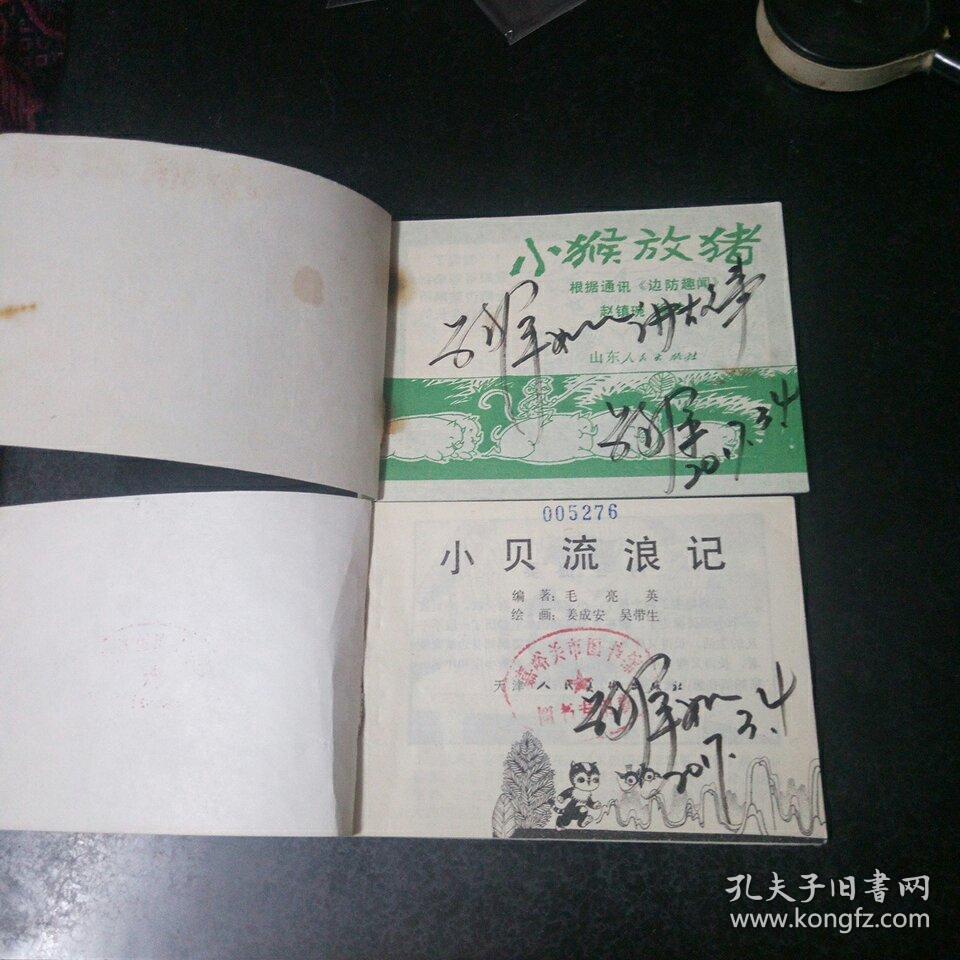 小猴放猪
根据通讯《边防趣闻》
赵镇琬
讲故事
山东人民出版社
2017.3.4
005276
小贝流浪记
编 著：毛 亮 英
绘 画：姜成安 吴带生
嘉峪关市图书馆
天津人民美术出版社
2017.3.4
孔夫子旧书网
www.kongfz.com